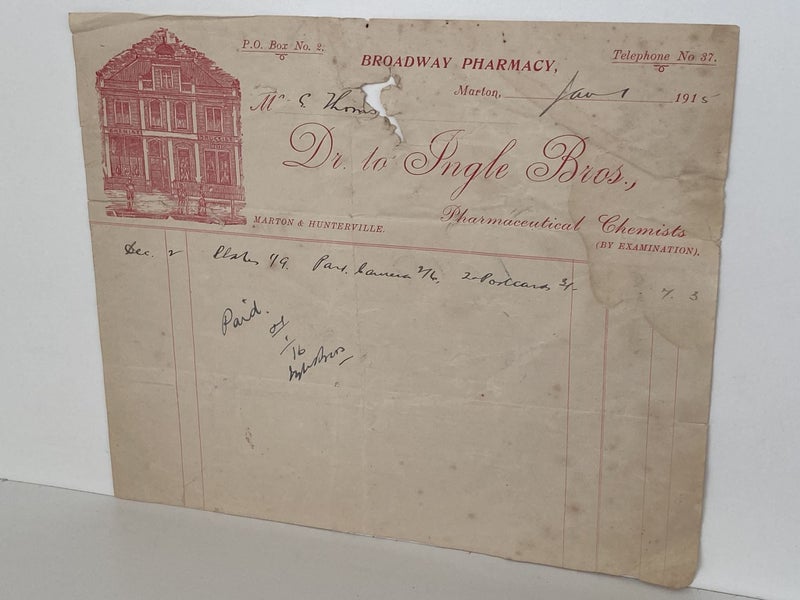 P.O. Box No. 2.
BROADWAY PHARMACY,
Telephone No 37.
Marton, Jan 1 1915
Mr G. Thoms
Dr. to Ingle Bros.,
Pharmaceutical Chemists
(BY EXAMINATION).
MARTON & HUNTERVILLE.
Dec. 2 Plates 1/9. Part Camera 2/6, 2 Postcards 3/- 7. 3
Paid.
Ingle Bros